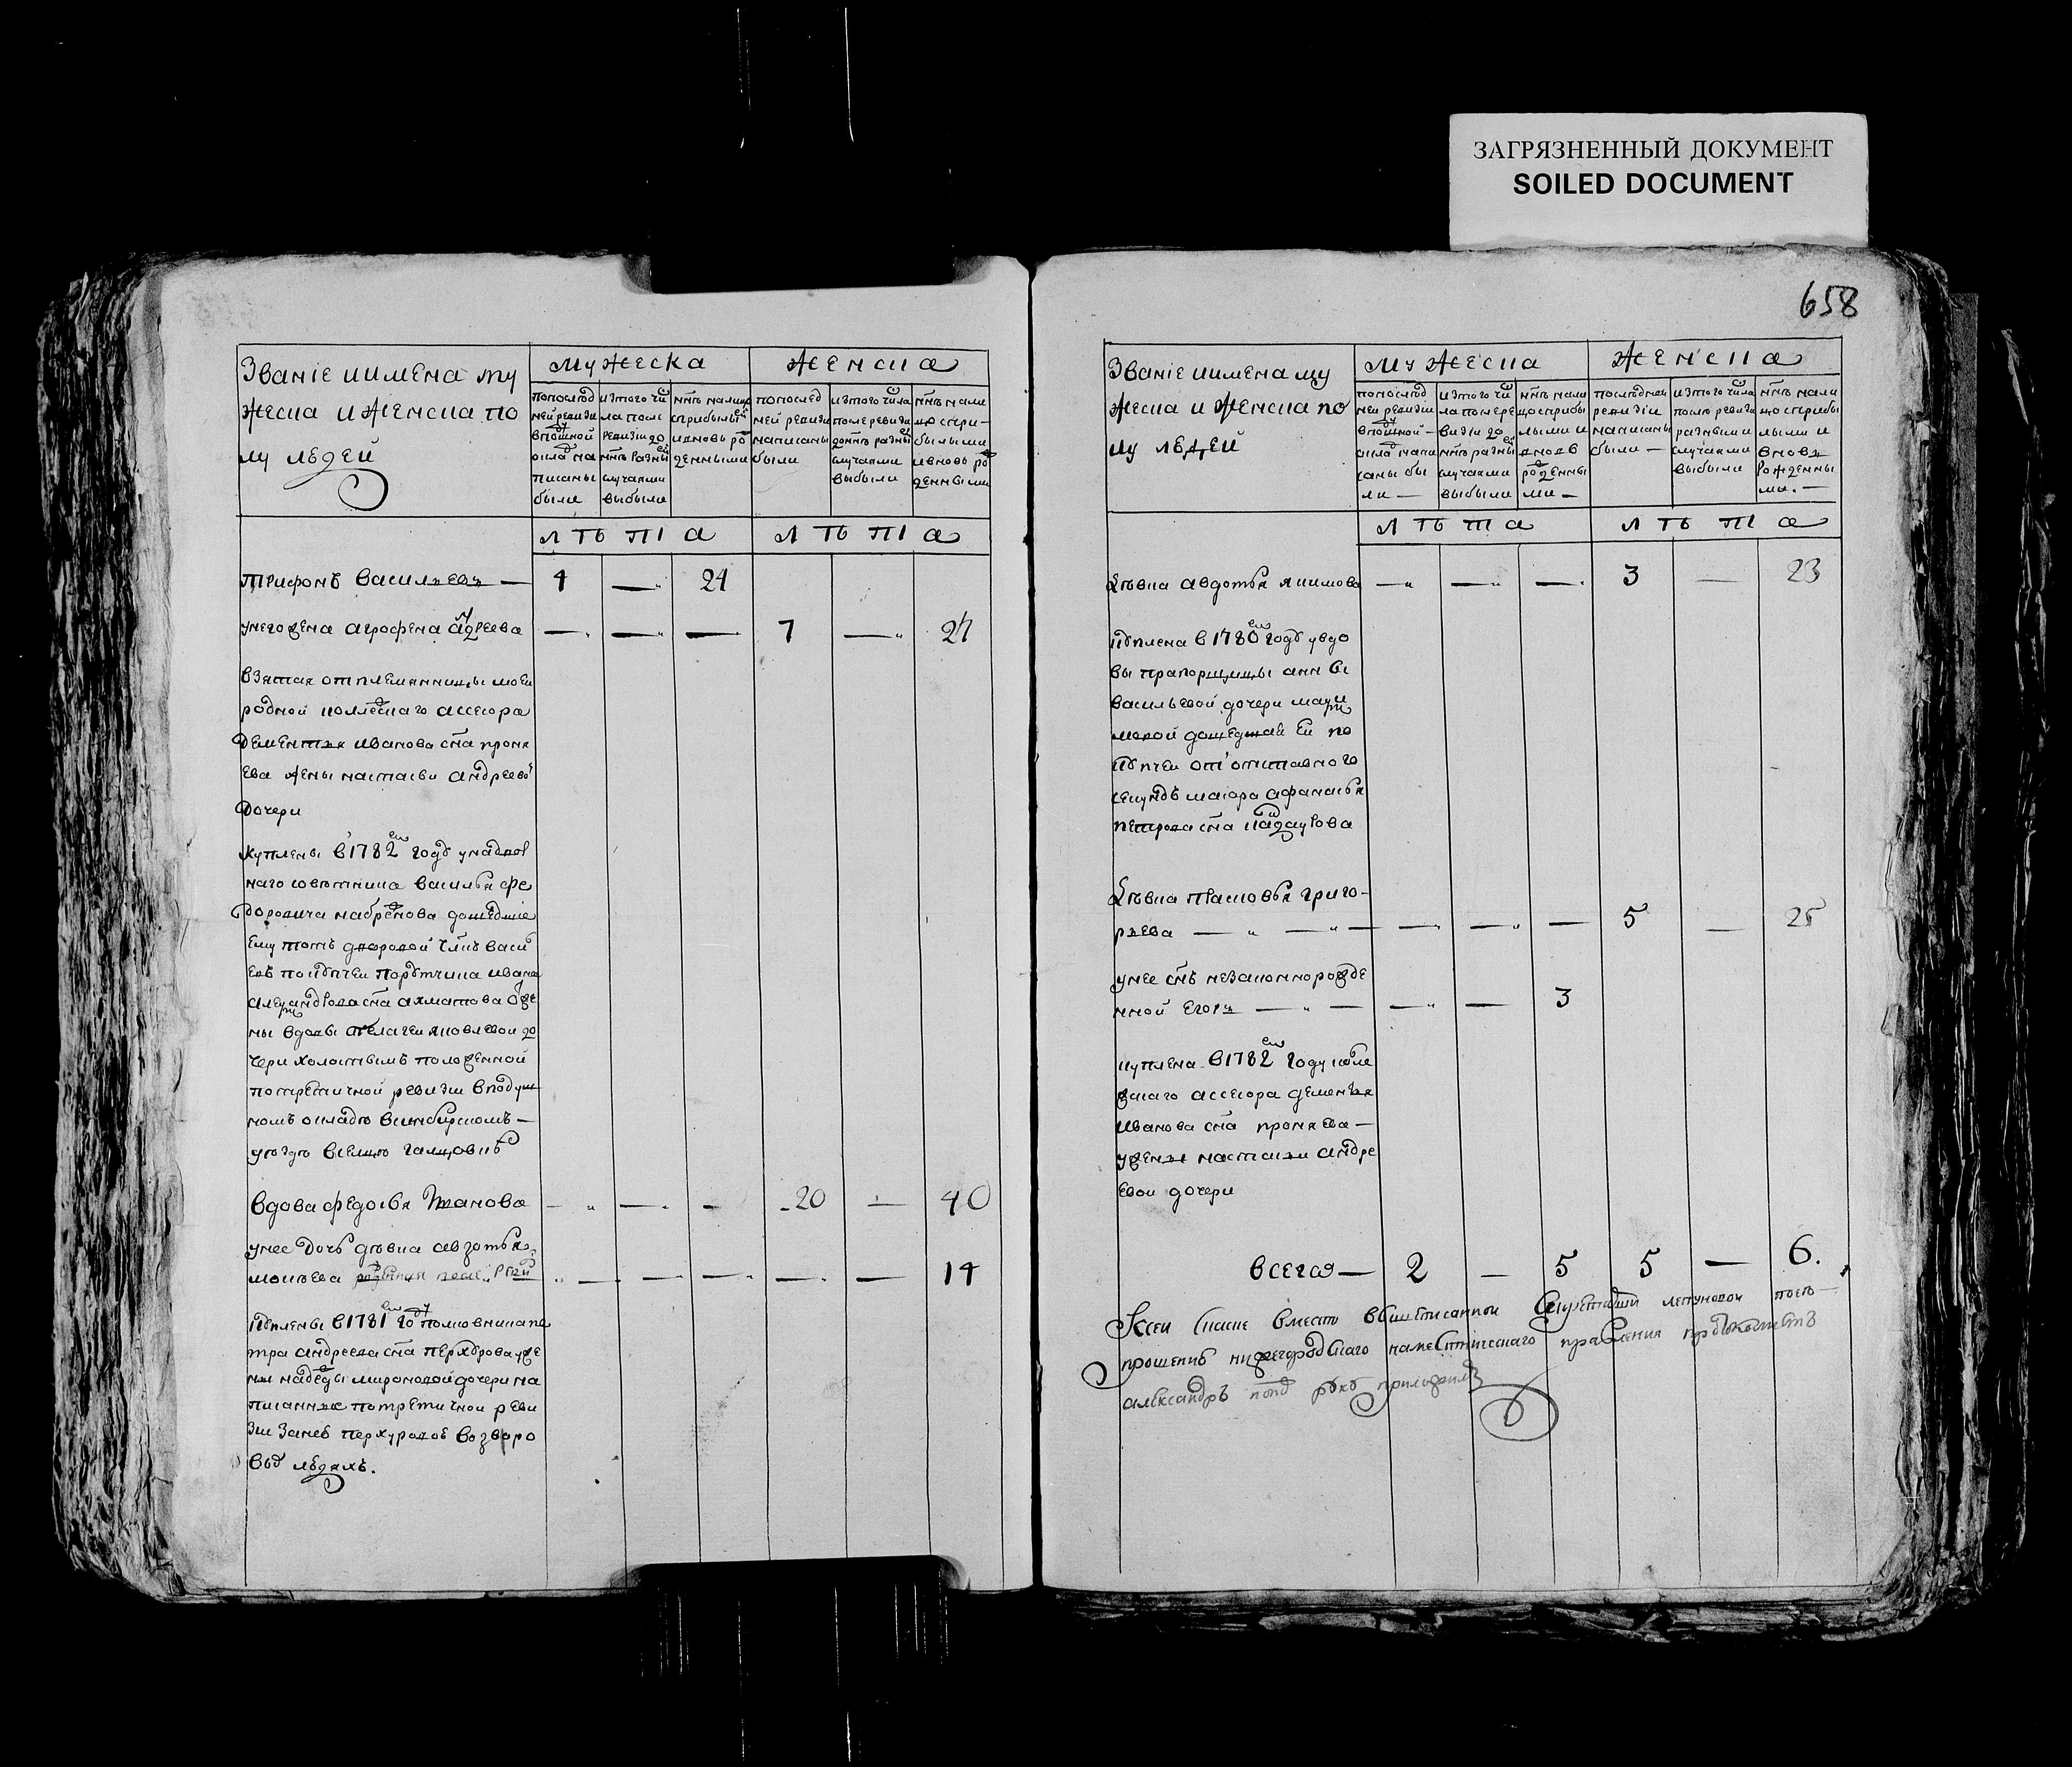 ЗАГРЯЗНЕННЫЙ ДОКУМЕНТ
SOILED DOCUMENT
658
Званіе иимена му
жеска и женска по
лу людей
мужеска
женска
попослѣд
ней ревизи
вподушной
окладъ на
писаны
были
изтого чи
ла после
ревизіи до
ннѣ разны
случаями
выбыли
ннѣ налицо
сприбылы
ивновь ро
жденными
попослед
ней ревизи
написаны
были
изтого числа
послеревизи
доннѣ разны
случаями
выбыли
ннѣ нали
цо спри-
былыми
ивновь ро
жденными
лѣта
лѣта
трифонъ васильевъ — 4 — 24
унего жена агрофена андреева — — — 7 — 27
взятая отплемянницы моеи
родной коллежскаго ассесора
дементья иванова сна проня
ева жены настасьи андреевой
дочери
куплены в 1782м году унадвор
наго советника василья фе
доровича набрекова дошедшие
ему тотъ дворовой члвкъ васи
евъ покупчеи порутчика ивана
александрова сна ахматова ože
ны вдовы пелагеи яковлевои до
чери холостымъ положенной
потретичной ревизии вподуш
номъ окладѣ всинбирскомъ —
уѣзде вселце
вдова федосья Иванова — — — 20 — 40
унее дочь девка авдотья
моисеева — — — — — 14
куплены в 1781м году полковника пе
тра андреева сна перхурова уже
ны надежды мироновой дочери на
писанные потретичной реви
зии занеюб перхуровою водворо
выхъ людяхъ.
Званіе иимена му
жеска и женска по
лу людей
мужеска
женска
попослѣд
ней ревизии
вподушной —
окладъ напи
саны бы
ли —
изтого чи
ла послере
визіи до
ннѣ разны
случаями
выбыли
ннѣ нали
цо сприбы
лыми и
вновь
рожденны
ми —
последней
ревизіи
написаны
были —
изтого числа
после ревизи
разными
случаями
выбыли
ннѣ нали
цо сприбы
лыми и
вновь
рожденны
ми. —
лѣта
лѣта
девка авдотья якимова — — — 3 — 23
куплена в 1780м году увдо
вы прапорщицы анны
васильевой дочери
дошедшая ей по
купчеи от отставного
секундъ маіора афанасья
петрова сна кайдаурова
девка прасковья григо-
рьева — — — — — 5 — 25
унее снъ незаконнорожде
нной егоръ — — — — 3
куплена в 1782м году колле
жскаго ассесора дементья
иванова сна проняева —
ужены настасьи андре
евои дочери
всего — 2 — 5 5 — 6.
Ксеи скаске вместо вышеписанной
прошению нижегородскаго наместническаго правления
александръ руку приложилъ